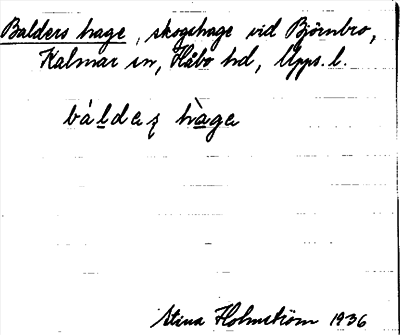 Balders hage, skogshage vid Björnbro,
Kalmar sn, Håbo hd, Upps. l.
báldeʐ hàga
Stina Holmström 1936